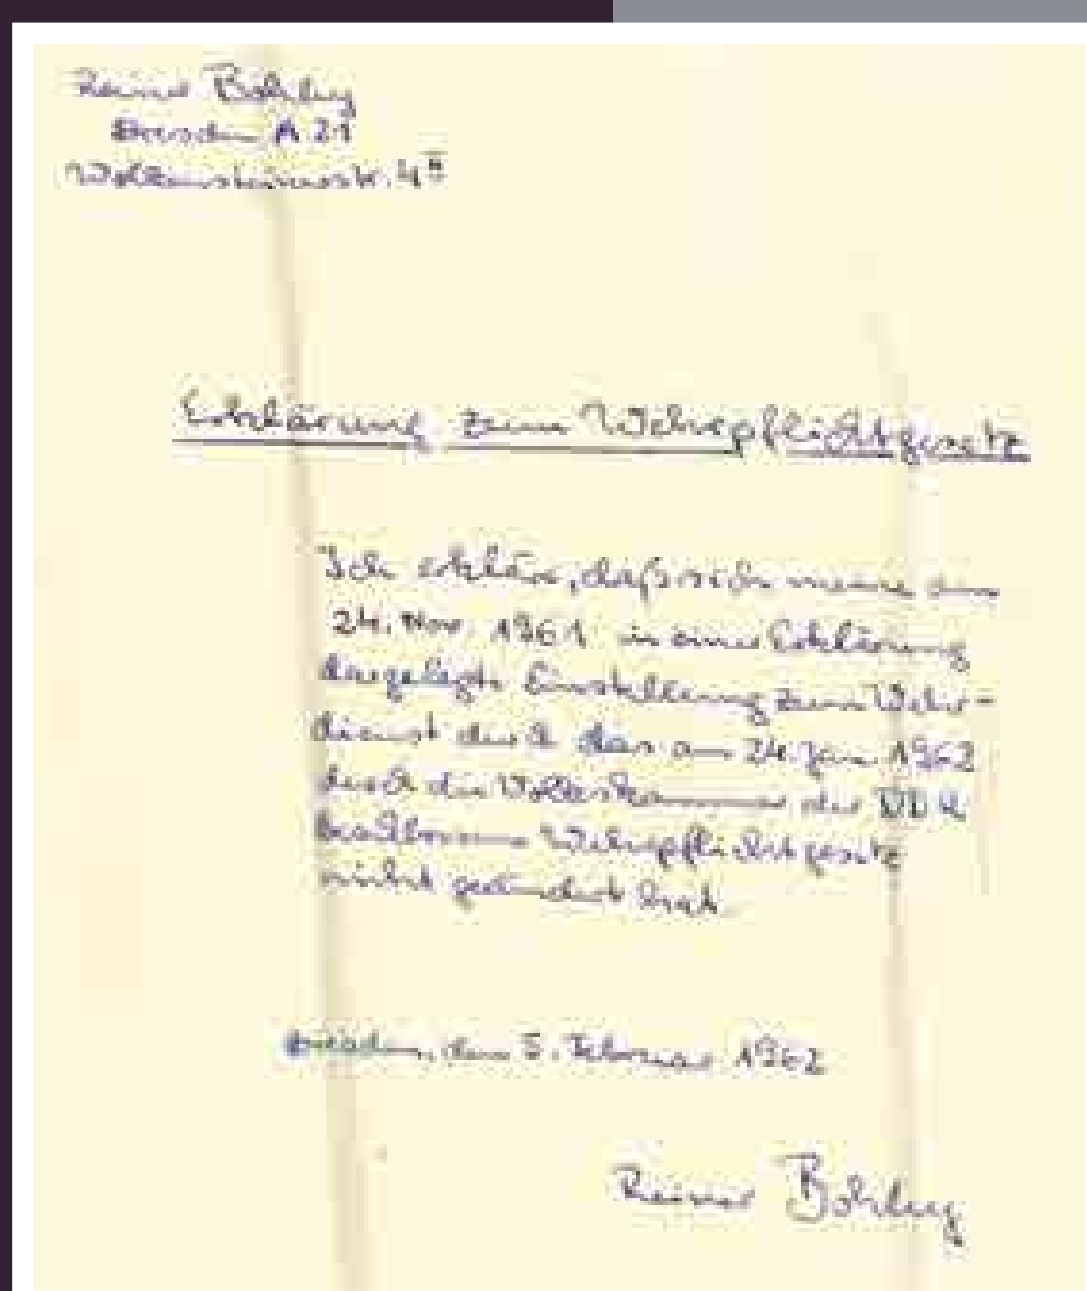 Reiner Bohley
Dresden A 21
Wolkensteinerstr. 4 II
Erklärung zum Wehrpflichtgesetz
Ich erkläre, daß sich meine am
24. Nov. 1961 in einer Erklärung
dargelegte Einstellung zum Wehr-
dienst durch das am 24. Jan. 1962
durch die Volkskammer der DDR
beschlossene Wehrpflichtgesetz
nicht geändert hat.
Dresden, den 5. Februar 1962
Reiner Bohley